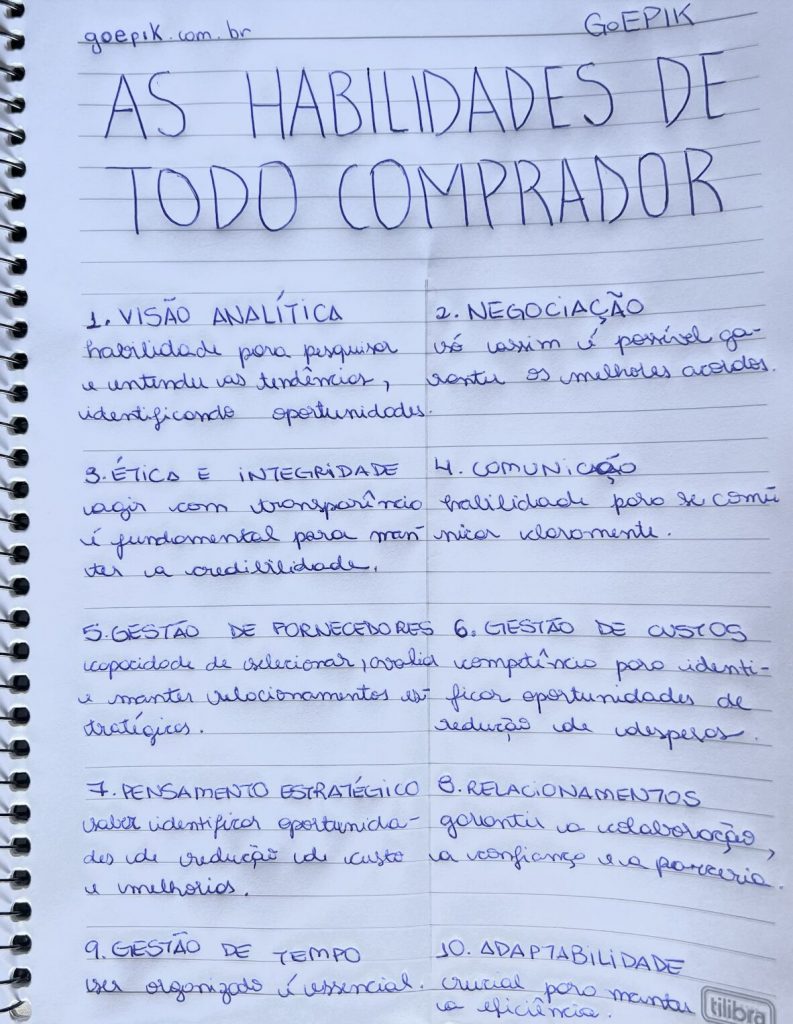 goepik.com.br
GoEPIK
AS HABILIDADES DE
TODO COMPRADOR
1. VISÃO ANALÍTICA
habilidade para pesquisar
e entender as tendências,
identificando oportunidades.
2. NEGOCIAÇÃO
só assim é possível ga-
rantir os melhores acordos.
3. ÉTICA E INTEGRIDADE
agir com transparência
é fundamental para man-
ter a credibilidade.
4. COMUNICAÇÃO
habilidade para se comu
nicar claramente.
5. GESTÃO DE FORNECEDORES
capacidade de selecionar, avalia
e manter relacionamentos es-
tratégicos.
6. GESTÃO DE CUSTOS
competência para identi-
ficar oportunidades de
redução de despesas.
7. PENSAMENTO ESTRATÉGICO
saber identificar oportunida-
des de redução de custo
e melhorias.
8. RELACIONAMENTOS
garantir a colaboração,
a confiança e a parceria.
9. GESTÃO DE TEMPO
ser organizado é essencial.
10. ADAPTABILIDADE
crucial para manter
a eficiência.
tilibra